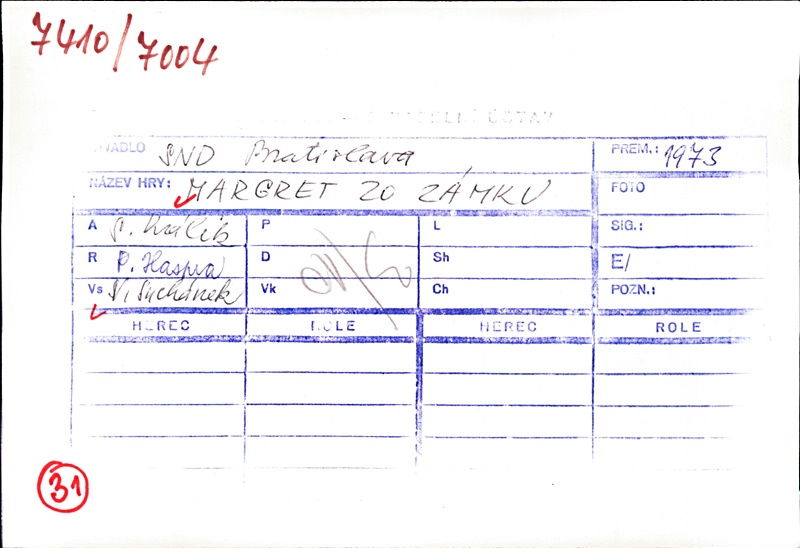 7410/7004
DIVADELNÍ ÚSTAV
DIVADLO SND Bratislava PREM.: 1973
NÁZEV HRY: MARGRET ZO ZÁMKU FOTO
A Š. Králik P L SIG.:
R P. Haspra D Sh E/
Vs V. Suchánek Vk Ch POZN.:
HEREC ROLE HEREC ROLE
31